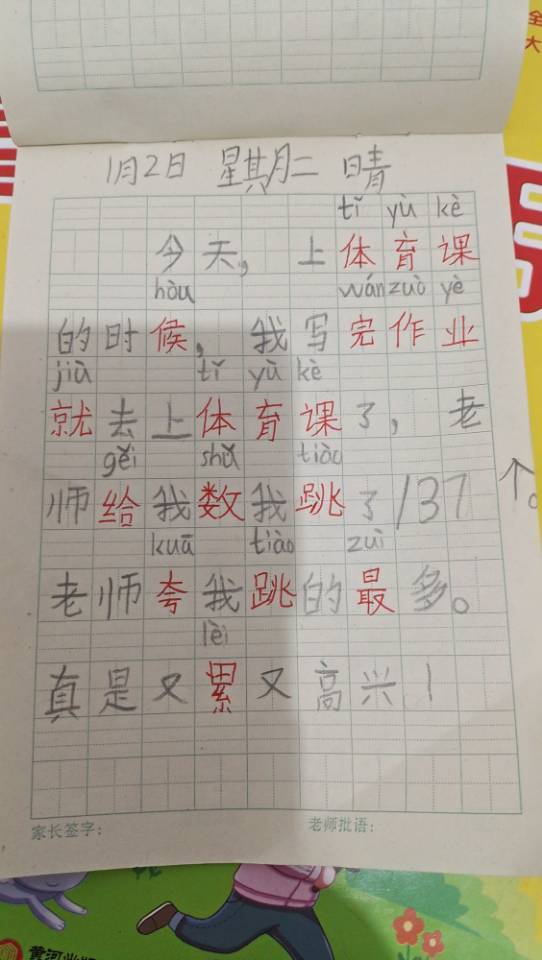 全
大
1月2日 星期二 晴
tǐ yù kè
今天，上体育课
hòu wán zuò yè
的时候，我写完作业
jiù tǐ yù kè
就去上体育课了，老
gěi shǔ tiào
师给我数我跳了137个。
kuā tiào zuì
老师夸我跳的最多。
lèi
真是又累又高兴！
家长签字：
老师批语：